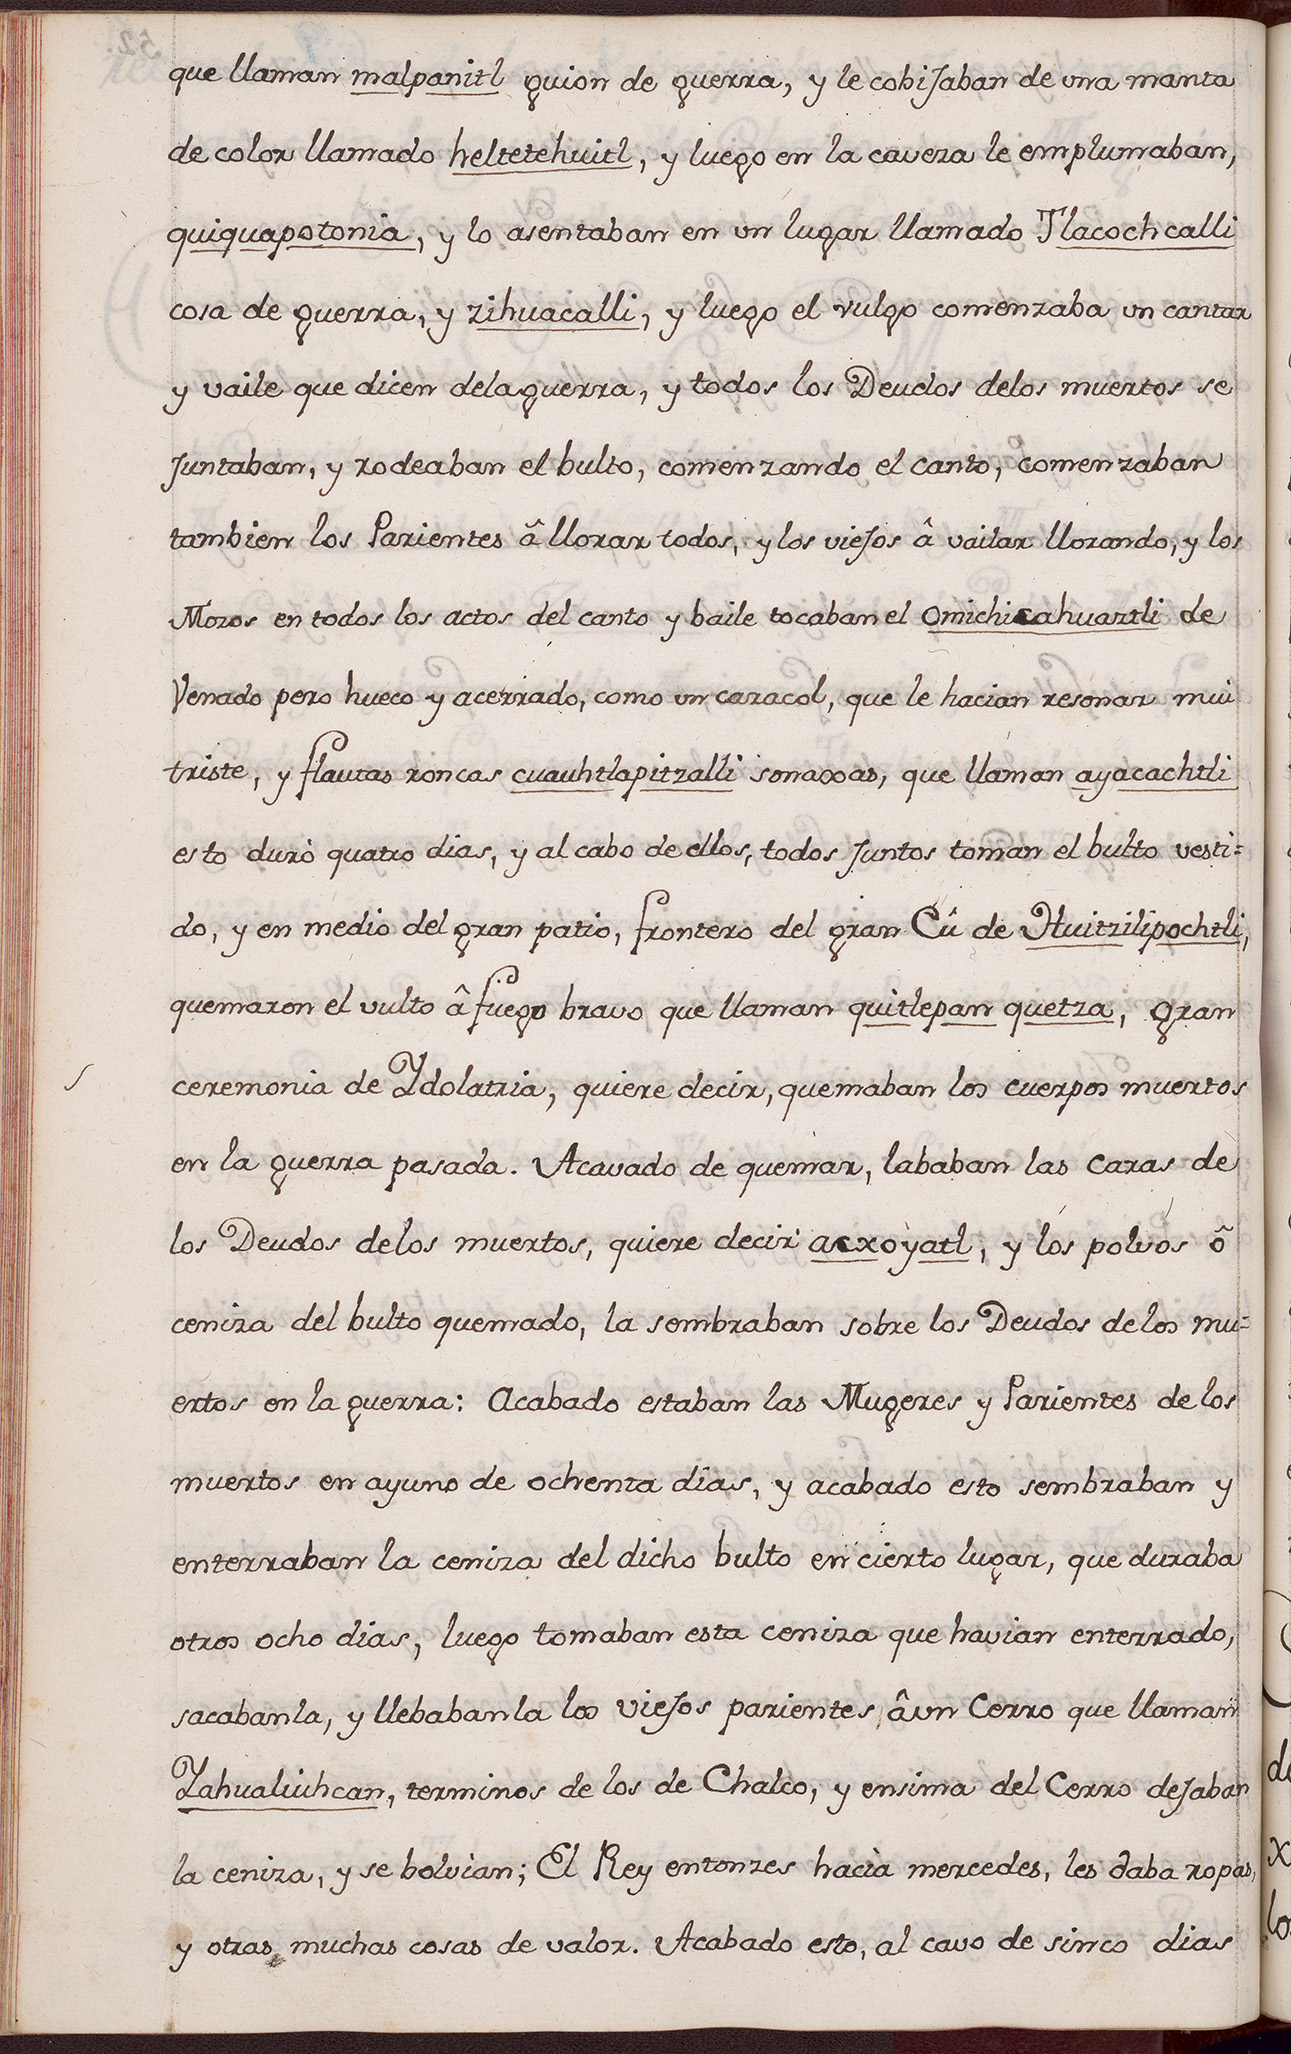 que llaman malpanitl guion de guerra, y le cobiJaban de vna manta
de color llamado heltetehuitl, y luego en la caveza le emplumaban,
quiquapotonia, y lo asentaban en vn lugar llamado Tlacochcalli
cosa de guerra, y zihuacalli, y luego el vulgo comenzaba vn cantar
y vaile que dicen dela guerra, y todos los Deudos delos muertos se
Juntaban, y rodeaban el bulto, comenzando el canto, comenzaban
tambien los Parientes â llorar todos, y los vieJos â vailar llorando, y los
Mozos en todos los actos del canto y baile tocaban el Omichicahuaztli de
Venado pero hueco y acerrado, como vn caracol, que le hacian resonar mui
triste, y flautas roncas cuauhtlapitzalli sonaxas, que llaman ayacachtli
esto durò quatro dias, y al cabo de ellos, todos Juntos toman el bulto vesti=
do, y en medio del gran patio, frontero del gran Cû de Huitzilipochtli,
quemaron el vulto â fuego bravo que llaman quitlepan quetza, gran
ceremonia de Ydolatria, quiere decir, quemaban los cuerpos muertos
en la guerra pasada. Acavado de quemar, lababan las caras de
los Deudos delos muertos, quiere decir acxoyatl, y los polvos ô
ceniza del bulto quemado, la sembraban sobre los Deudos delos mu=
ertos en la guerra: Acabado estaban las Mugeres y Parientes de los
muertos en ayuno de ochenta dias, y acabado esto sembraban y
enterraban la ceniza del dicho bulto en cierto lugar, que duraba
otros ocho dias, luego tomaban esta ceniza que havian enterrado,
sacabanla, y llebabanla los vieJos parientes âvn Cerro que llaman
Yahualiuhcan, terminos de los de Chalco, y ensima del Cerro deJaban
la ceniza, y se bolvian; El Rey entonzes hacìa mercedes, les daba ropas,
y otras muchas cosas de valor. Acabado esto, al cavo de sinco dias